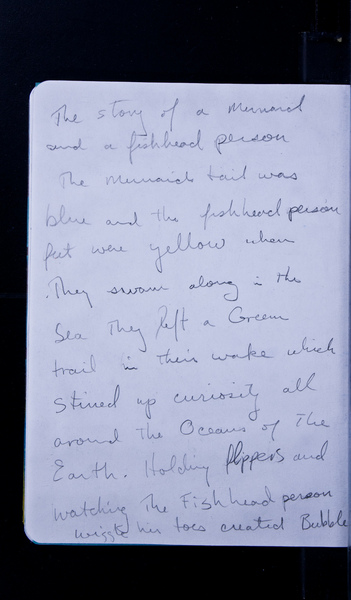 The story of a Mermaid
and a fishhead person
The Mermaids tail was
blue and the fishhead person
feet were yellow when
They swam along in the
Sea They left a Green
trail in their wake which
Stirred up curiosity all
around The Oceans of The
Earth. Holding flippers and
watching The Fishhead person
wiggle his toes created Bubble